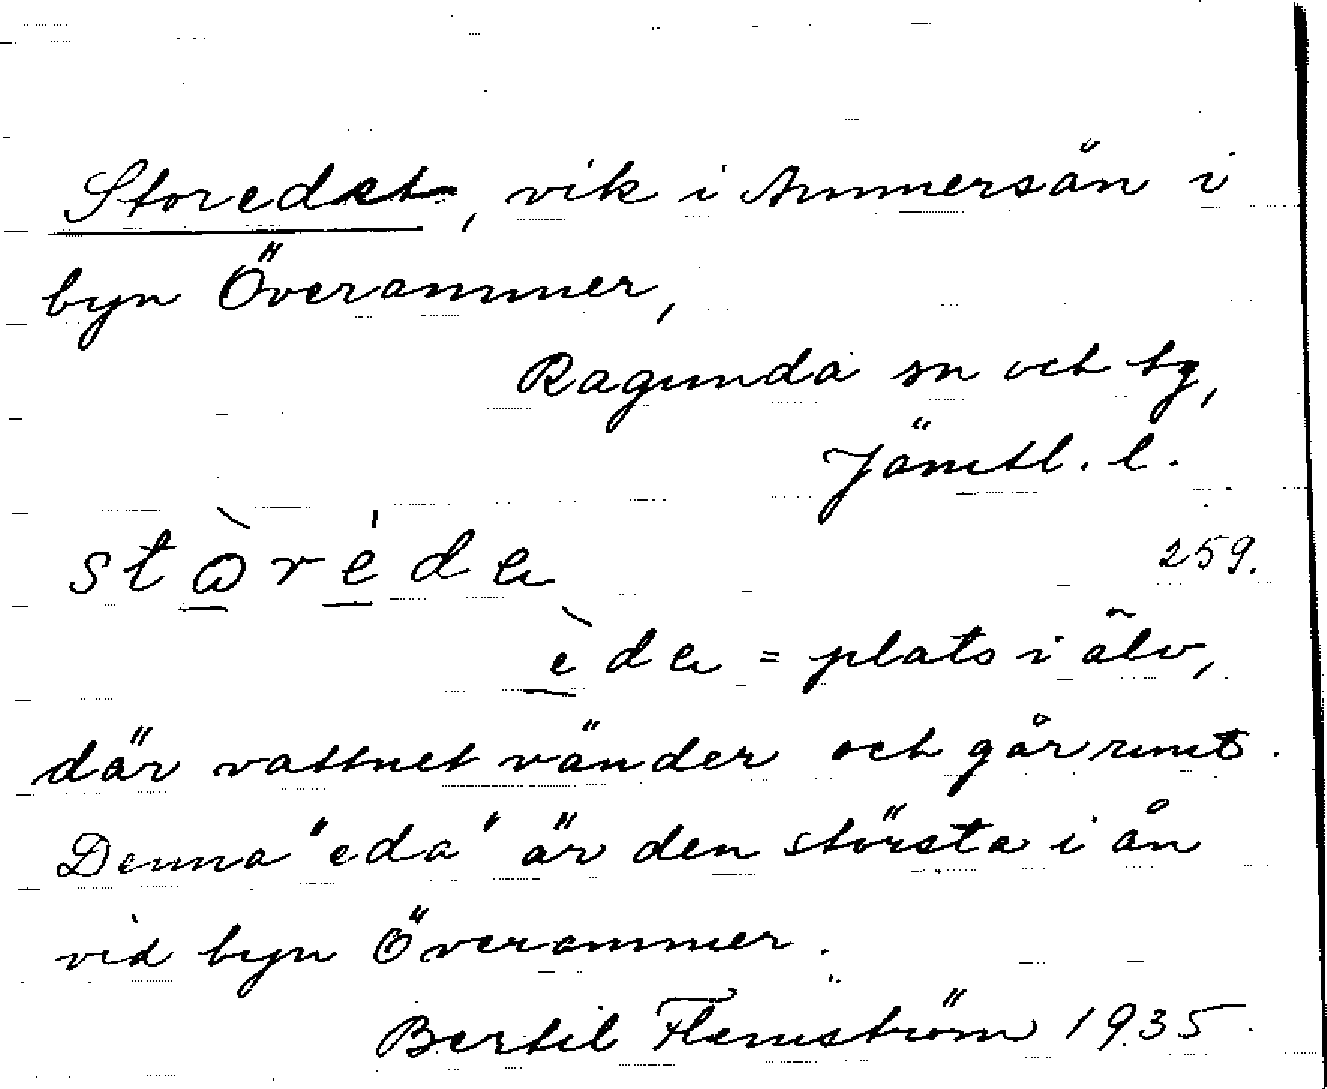 Storedet, vik i Ammersån i
byn Överammer,
Ragunda sn och tg,
Jämtl. l.
259.
stòréda
èda = plats i älv,
där vattnet vänder och går runt.
Denna "eda" är den största i ån
vid byn Överammer.
Bertil Flemström 1935.